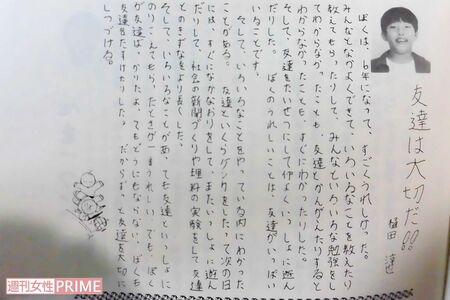 友達は大切だ!!
植田
ぼくは、6年になって、すごくうれしかった。
みんなとなかよくできて、いろいろなことを教えたり
教えてもらったりして、みんなといろいろな勉強をし
てわからなかったことも、友達とかんがえたりすると
わからなかったことも、すぐにわかったりした。
そして、友達をたいせつにして仲よく、いっしょに遊ん
だりした。ぼくのうれしいことは、友達がいっぱい
いることです。
そして、いろいろなことをやっている内にわかった
ことがある。友達といくらゲンカをしたって次の日
には、すぐになかなおりをして、またいっしょに遊ん
だりして、社会の新聞づくりや理科の実験をして友達
とのきずなをより長した。
そして、いろいろなことがあっても友達といっしょに
のりこえてもらったときが一番うれしい。でも、ぼく
が友達ばっかりたよってもどうにもならない。ぼくも
友達をたすけたりした。だからずっと友達を大切に
しつづける。
週刊女性PRIME